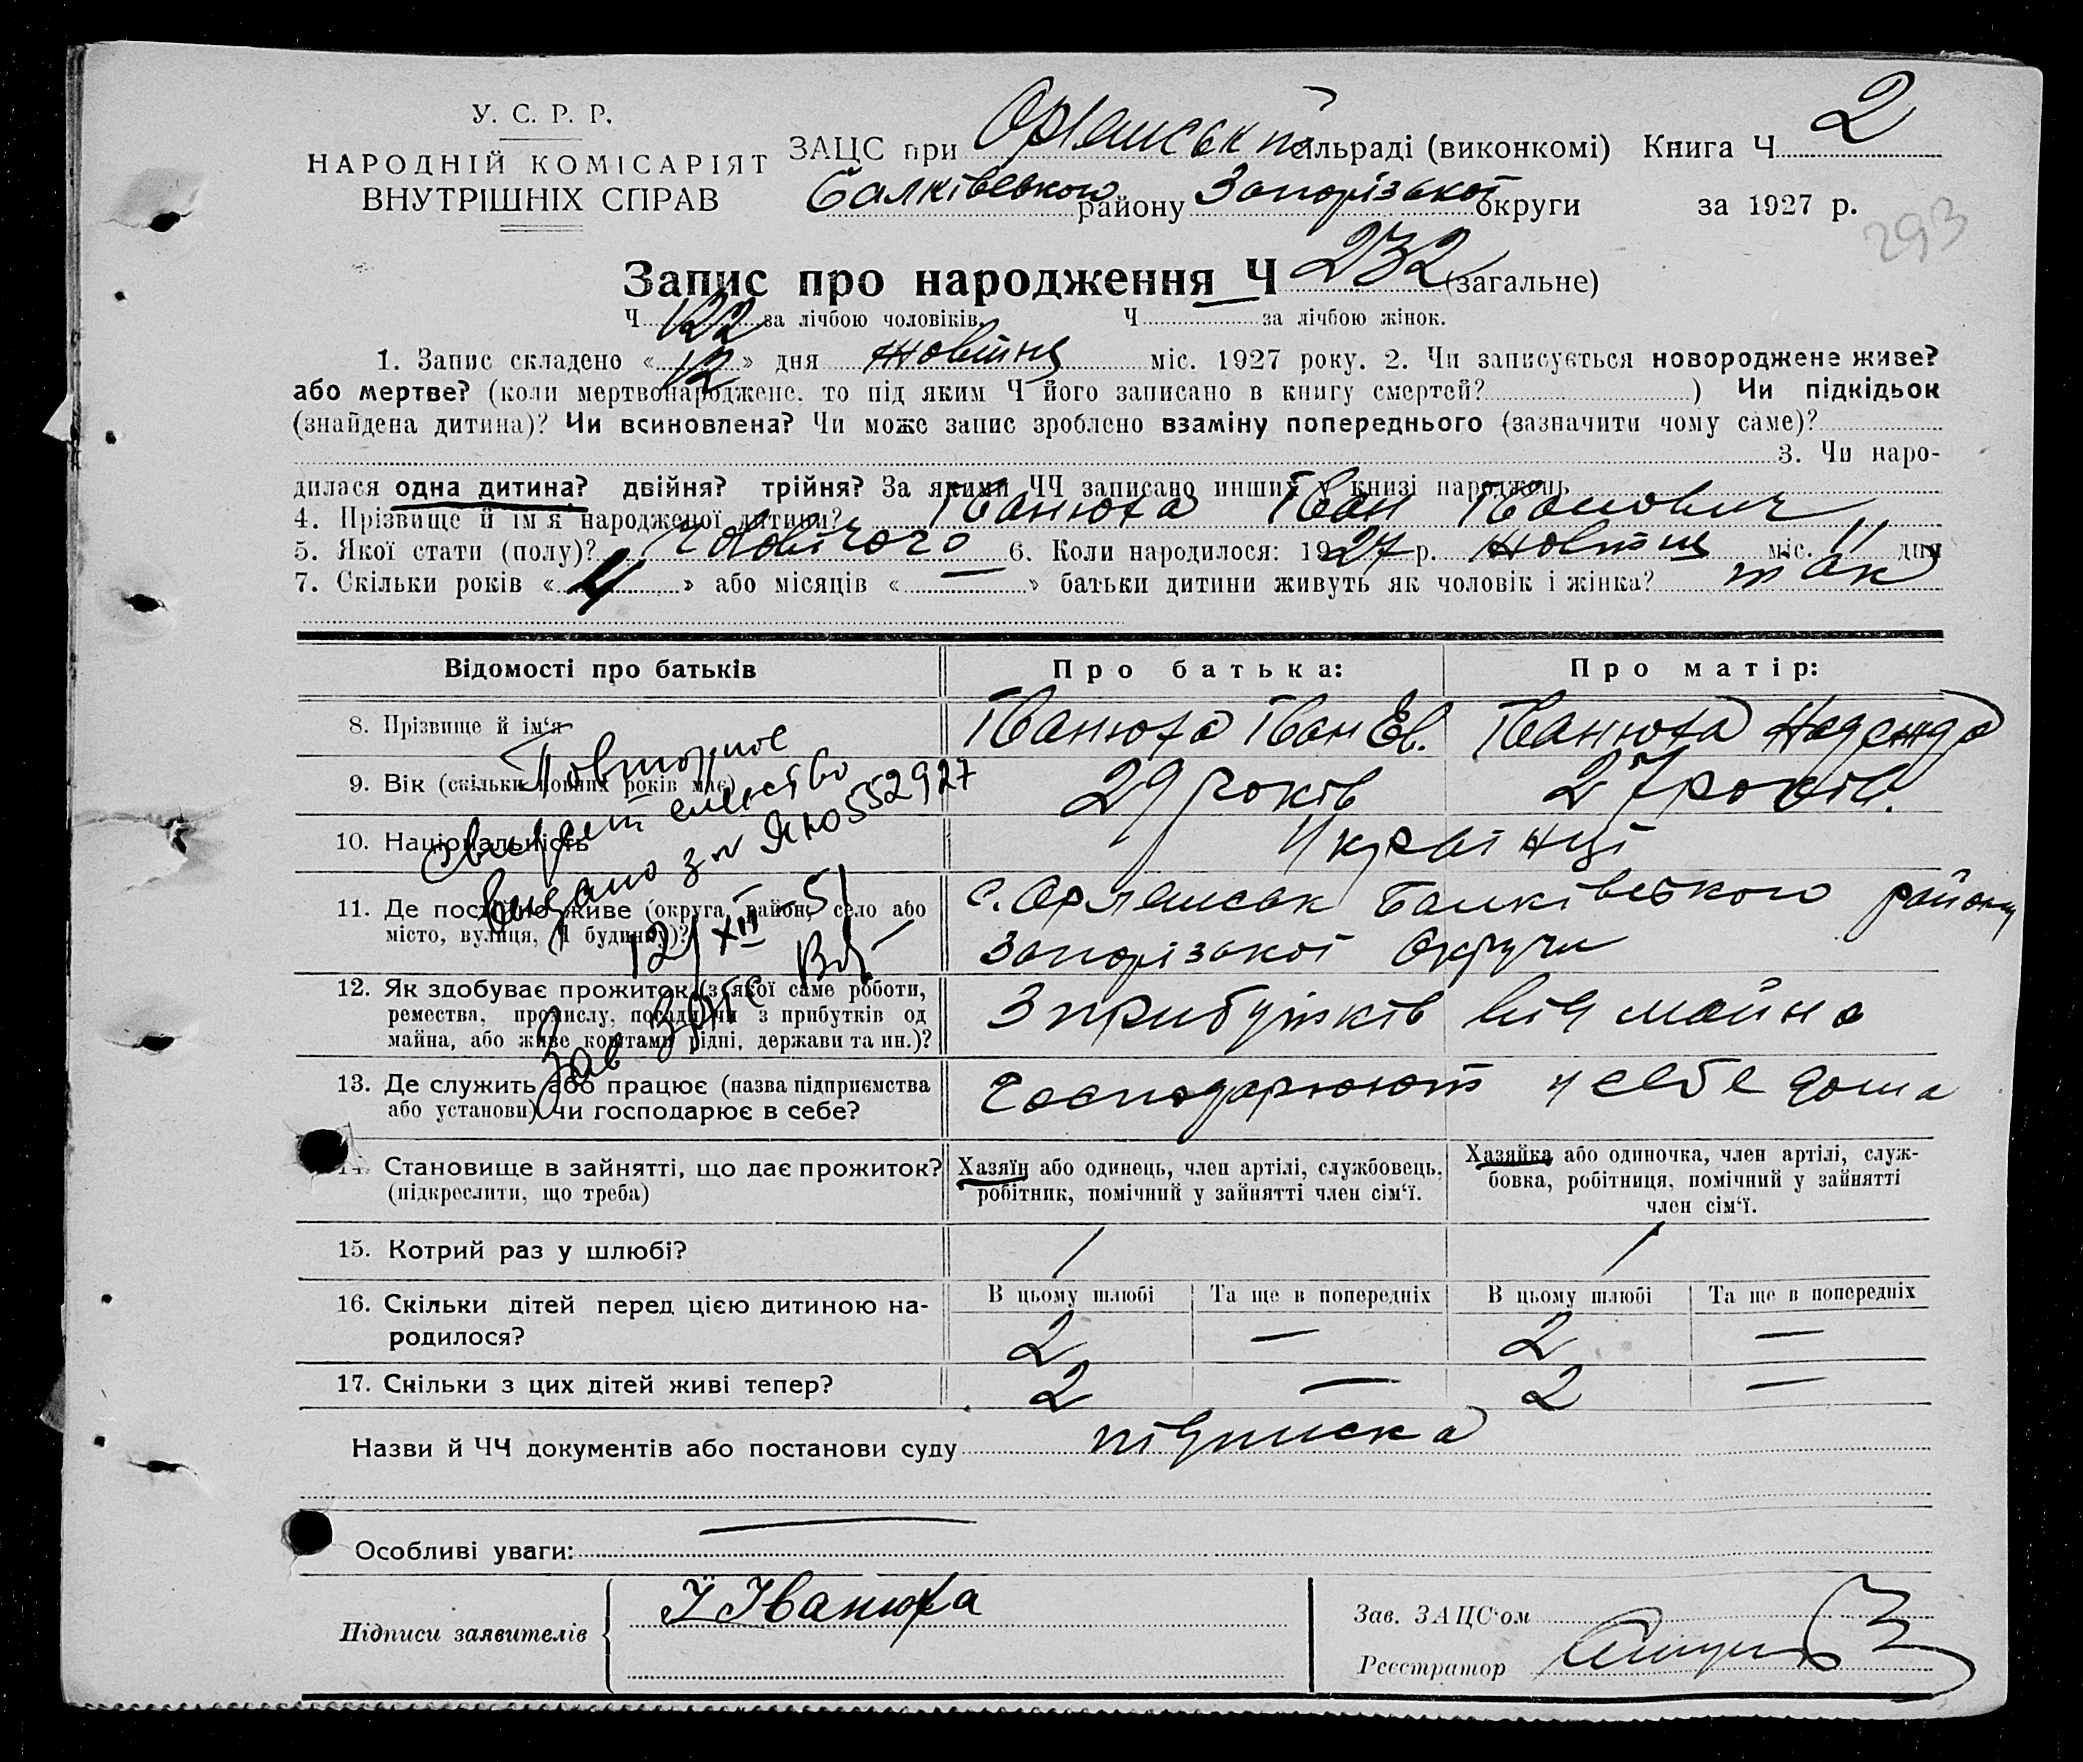 У. С. Р. Р.
НАРОДНІЙ КОМІСАРІЯТ
ВНУТРІШНІХ СПРАВ
ЗАЦС при Орлянській сільраді (виконкомі) Книга Ч 2
Балківського району Запорізької округи за 1927 р.
293
Запис про народження Ч 232 (загальне)
Ч 122 за лічбою чоловіків. Ч за лічбою жінок.
1. Запис складено « 12 » дня жовтня міс. 1927 року. 2. Чи записується новороджене живе?
або мертве? (коли мертвонароджене, то під яким Ч його записано в книгу смертей? ) Чи підкідьок
(знайдена дитина)? Чи всиновлена? Чи може запис зроблено взаміну попереднього (зазначити чому саме)?
3. Чи наро-
дилася одна дитина? двійня? трійня? За якими ЧЧ записано инших у книзі народжень
4. Прізвище й ім'я народженої дитини? Іванюха Іван Іванович
5. Якої стати (полу)? чоловічого 6. Коли народилося: 1927 р. жовтня міс. 11 дня
7. Скільки років « 4 » або місяців « — » батьки дитини живуть як чоловік і жінка? так
Відомості про батьків Про батька: Про матір:
8. Прізвище й ім'я Іванюха Іван Єв. Іванюха Надежда
9. Вік (скільки повних років має) 29 років 27 років.
10. Національність Українці
11. Де постійно живе (округа, район, село або
місто, вулиця, Ч будинку)?
с. Орлянськ Балківського району
Запорізької Округи
12. Як здобуває прожиток (з якої саме роботи,
ремества, промислу, посади чи з прибутків од
майна, або живе коштами рідні, держави та ин.)?
З прибутків від майна
13. Де служить або працює (назва підприємства
або установи) чи господарює в себе?
Господарюють у себе дома
Повторное
свидетельство
выдано за № ЯЮ 552927
12/XII–51
Зав ЗАГС
14. Становище в зайнятті, що дає прожиток?
(підкреслити, що треба)
Хазяїн або одинець, член артілі, службовець,
робітник, помічний у зайнятті член сім'ї.
Хазяйка або одиночка, член артілі, служ-
бовка, робітниця, помічний у зайнятті
член сім'ї.
15. Котрий раз у шлюбі? 1 1
16. Скільки дітей перед цією дитиною на-
родилося?
В цьому шлюбі Та ще в попередніх В цьому шлюбі Та ще в попередніх
2 — 2 —
17. Скільки з цих дітей живі тепер? 2 — 2 —
Назви й ЧЧ документів або постанови суду підписка
Особливі уваги: —
Підписи заявителів І Іванюха
Зав. ЗАЦС'ом
Реєстратор